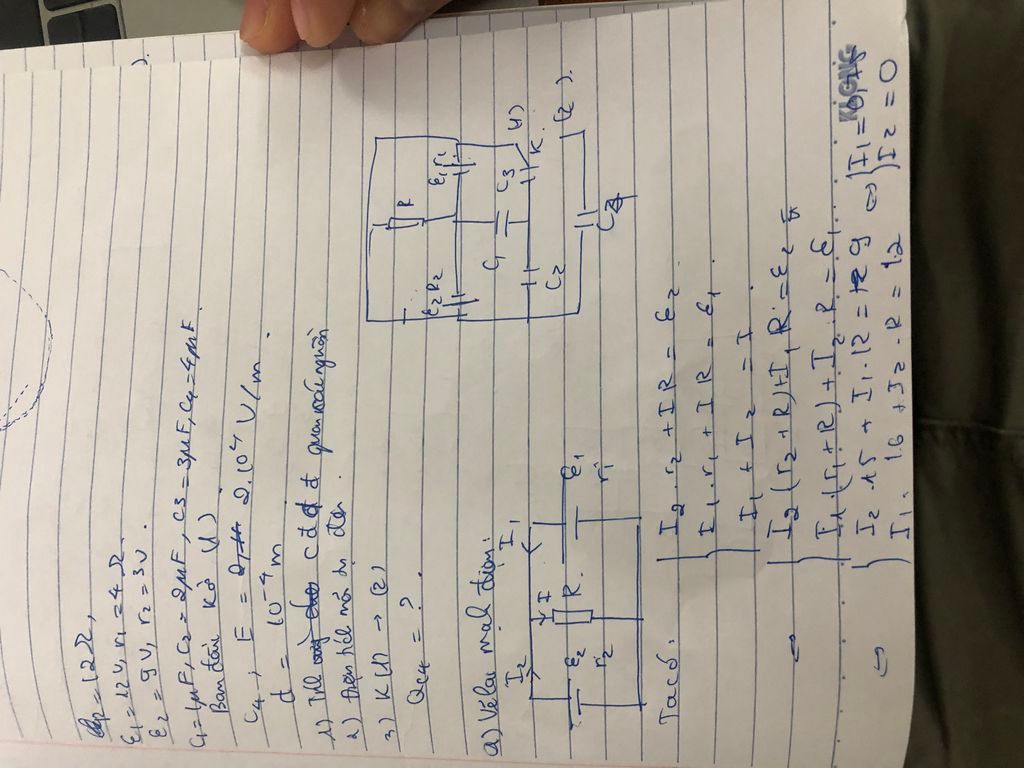 R = 12Ω,
ε1 = 12V, r1 = 4Ω.
ε2 = 9V, r2 = 3Ω.
C1 = 1μF, C2 = 2μF, C3 = 3μF, C4 = 4μF
Ban đầu K ở (1)
C4, E = 2.10⁴ V/m.
d = 10⁻⁴ m
1) Tìm cđdđ qua mỗi nguồn
2) điện tích mỗi tụ điện.
3) K (1) → (2)
QC4 = ?
R
ε2 R2
ε1 r1
C1
C3
(1)
K.
C2
(2).
C4
a) Vẽ lại mạch điện:
I2
I1
I
ε2
R.
ε1
r2
r1
Ta có.
I2.r2 + IR = ε2
I1.r1 + IR = ε1
I1 + I2 = I
↔ I2(r2+R)+I1R = ε2
I1.(r1+R)+I2.R = ε1
↔ I2.15 + I1.12 = 9 ⇔ I1 = 0,75
I1.16 + I2.R = 12 I2 = 0